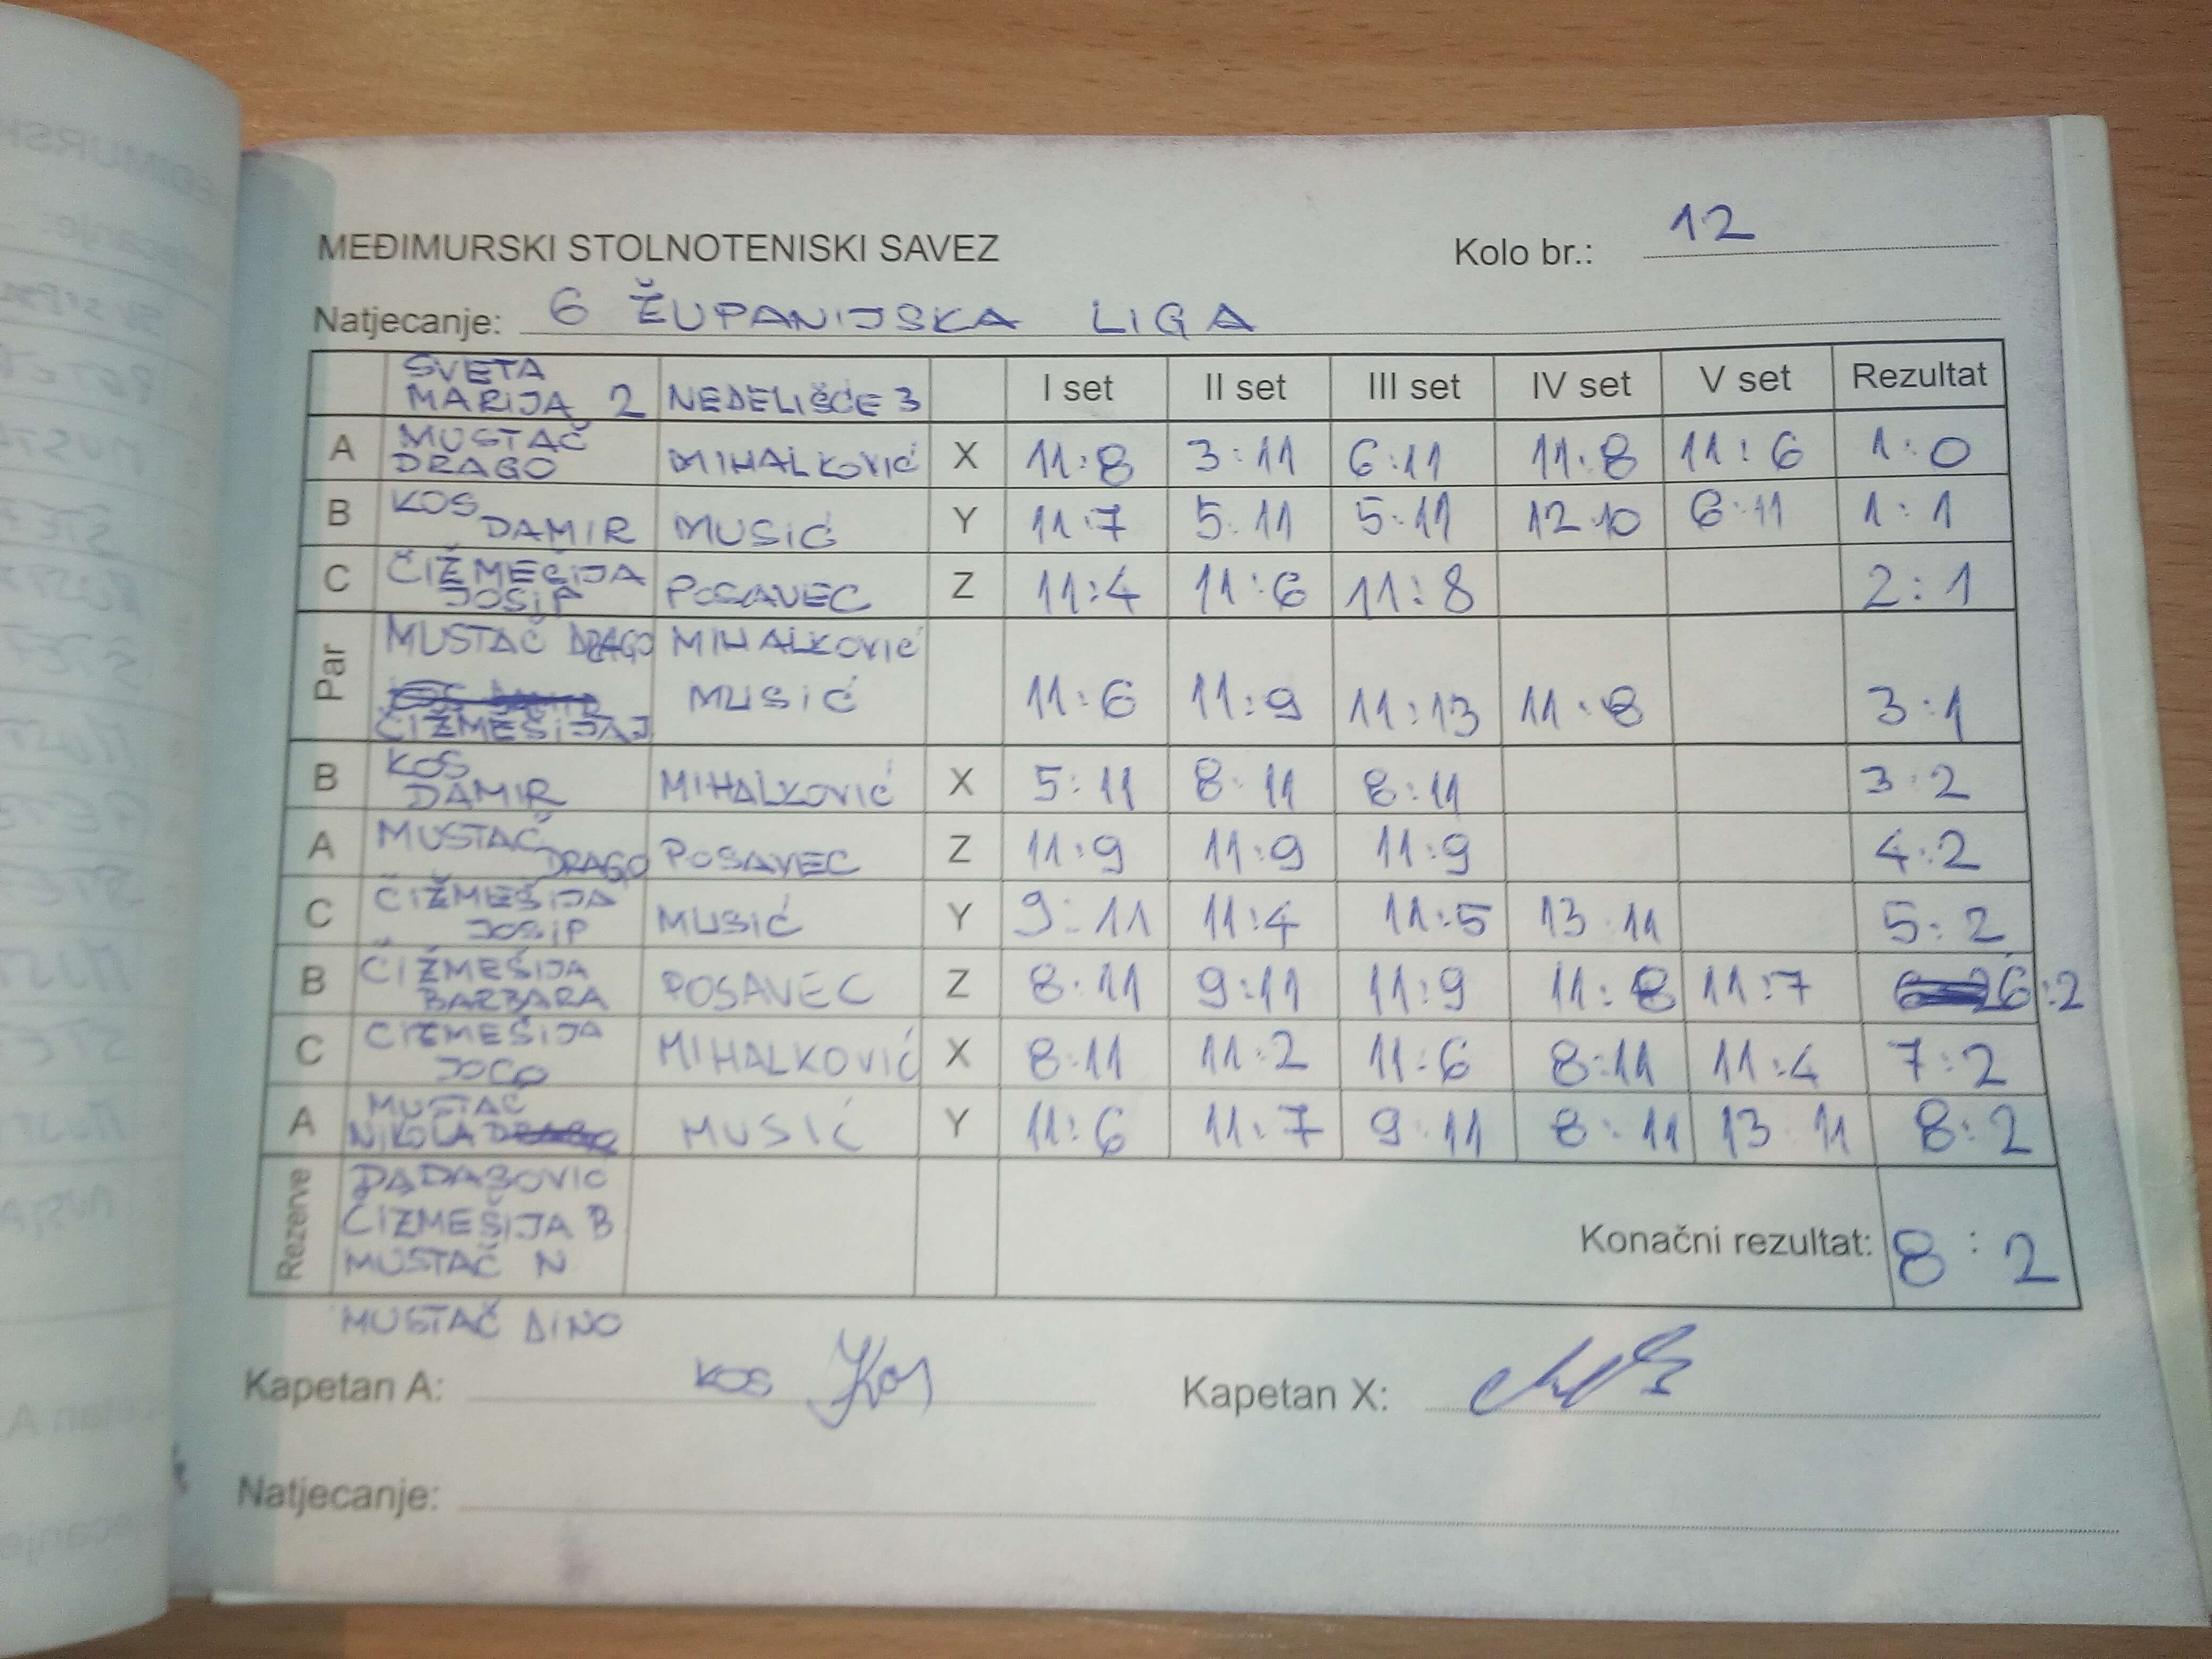 MEĐIMURSKI STOLNOTENISKI SAVEZ
Kolo br.: 12
Natjecanje: 6 ŽUPANIJSKA LIGA
SVETA MARIJA 2 NEDELIŠĆE 3 I set II set III set IV set V set Rezultat
A MUSTAČ DRAGO MIHALKOVIĆ X 11:8 3:11 6:11 11:8 11:6 1:0
B KOS DAMIR MUSIĆ Y 11:7 5:11 5:11 12:10 6:11 1:1
C ČIŽMEŠIJA JOSIP POSAVEC Z 11:4 11:6 11:8 2:1
Par MUSTAČ DRAGO MIHALKOVIĆ
ČIŽMEŠIJA J MUSIĆ 11:6 11:9 11:13 11:8 3:1
B KOS DAMIR MIHALKOVIĆ X 5:11 8:11 8:11 3:2
A MUSTAČ DRAGO POSAVEC Z 11:9 11:9 11:9 4:2
C ČIŽMEŠIJA JOSIP MUSIĆ Y 9:11 11:4 11:5 13:11 5:2
B ČIŽMEŠIJA BARBARA POSAVEC Z 8:11 9:11 11:9 11:8 11:7 6:2
C ČIŽMEŠIJA JOCO MIHALKOVIĆ X 8:11 11:2 11:6 8:11 11:4 7:2
A MUSTAČ NIKOLA MUSIĆ Y 11:6 11:7 9:11 8:11 13:11 8:2
Rezerve
ČIZMEŠIJA B
MUSTAČ N
Konačni rezultat: 8:2
MUSTAČ DINO
Kapetan A: KOS Kos Kapetan X:
Natjecanje: